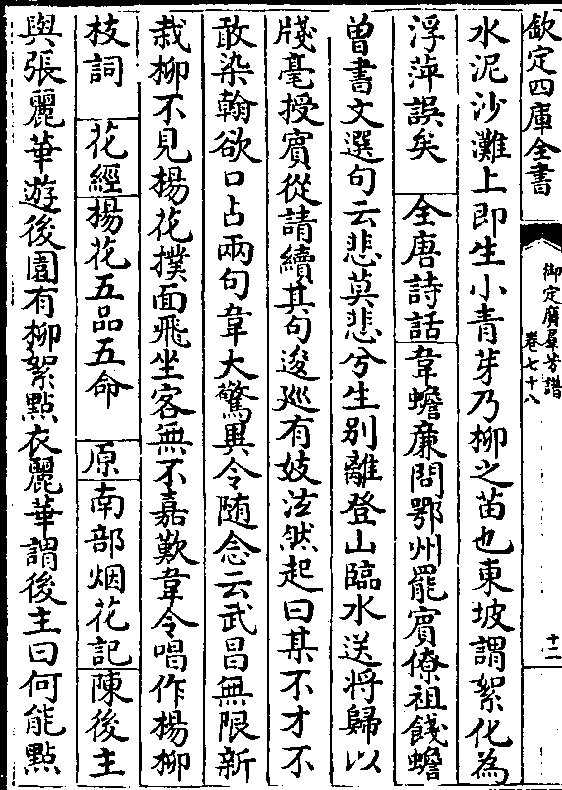 欽定四庫全書
御定廣羣芳譜
卷七十八
十二
水泥沙灘上即生小青芽乃柳之苗也東坡謂絮化為
浮萍誤矣 全唐詩話韋蟾廉問鄂州罷賓僚祖餞蟾
曽書文選句云悲莫悲兮生别離登山臨水送將歸以
牋毫授賓從請續其句逡巡有妓泫然起曰某不才不
敢染翰欲口占兩句韋大驚異令随念云武昌無限新
栽柳不見楊花撲面飛坐客無不嘉歎韋令唱作楊柳
枝詞 花經楊花五品五命 原南部烟花記陳後主
與張麗華遊後園有柳絮點衣麗華謂後主曰何能點